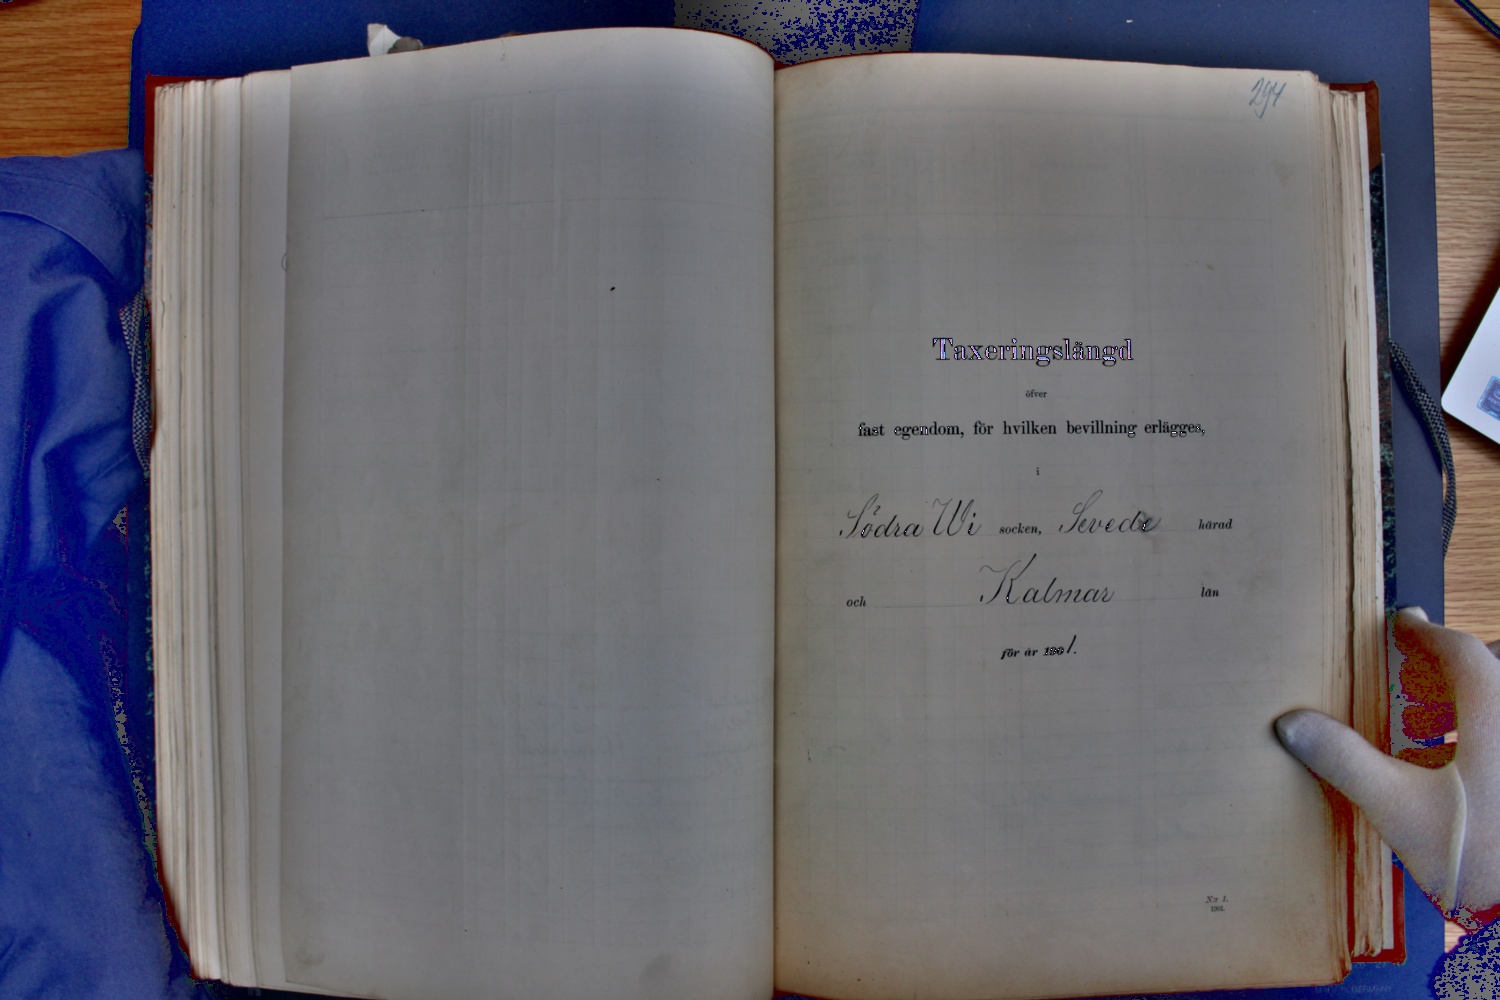 294
Taxeringslängd
öfver
fast egendom, för hvilken bevillning erlägges,
i
Södra Wi socken, Sevede härad
och Kalmar län
för år 1901.
N:r 1.
1901.